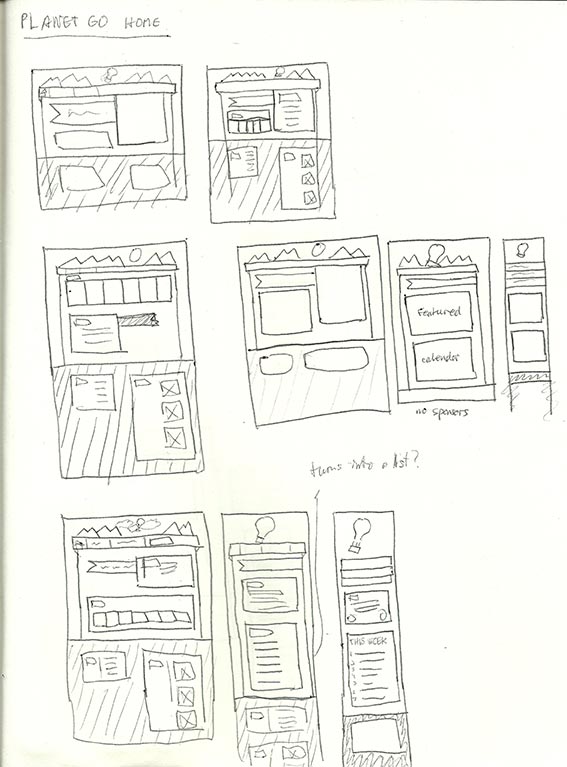 PLANET GO HOME
Featured
calendar
no sponsors
turns into a list?
THIS WEEK